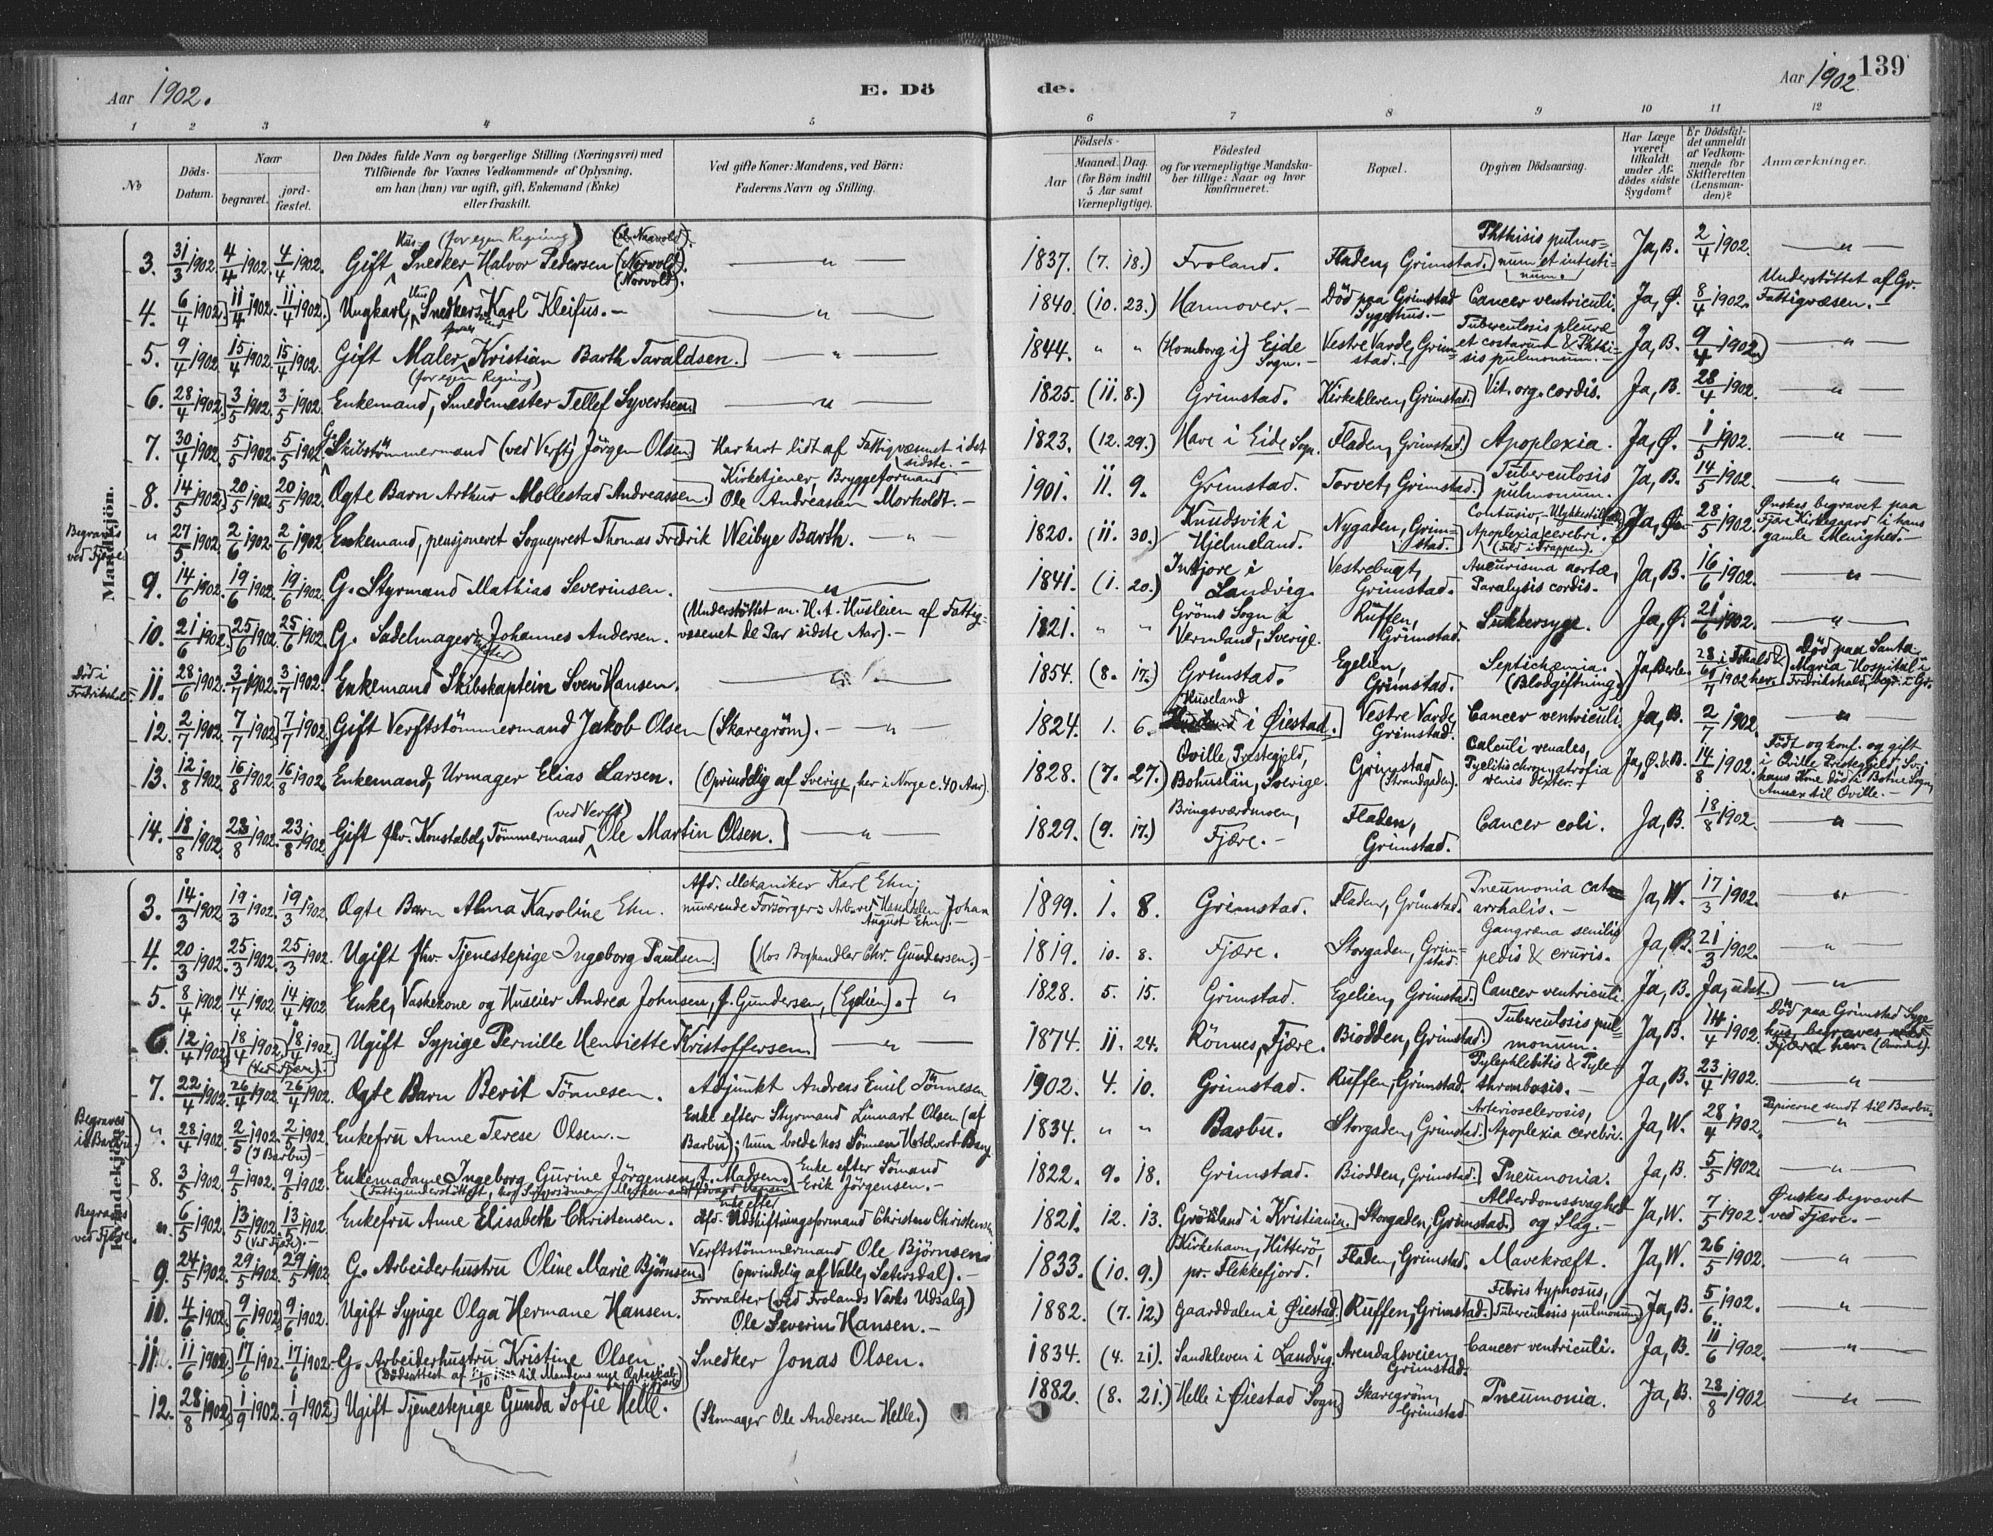 Aar 1902.
E. Dö
de.
Aar 1902
139
1 2 3 4 5
6 7 8 9 10 11 12
No
Döds-Datum.
Naar
begravet.
jord-fæstet.
Den Dödes fulde Navn og borgerlige Stilling (Næringsvei) med
Tilföiende for Voxnes Vedkommende af Oplysning,
om han (hun) var ugift, gift, Enkemand (Enke)
eller fraskilt.
Ved gifte Koner: Mandens, ved Börn:
Faderens Navn og Stilling.
Födsels-
Aar
Maaned. Dag.
(for Börn indtil
5 Aar samt
Værnepligtige).
Födested
og for værnepligtige Mandska-
ber tillige: Naar og hvor
konfirmeret.
Bopæl.
Opgiven Dödsaarsag.
Har Læge
været
tilkaldt
under Af-
dödes sidste
Sygdom?
Er Dödsfal-
det anmeldt
af Vedkom-
mende for
Skifteretten
(Lensman-
den)?
Anmærkninger.
Mandkjön.
3. 31/3 1902 4/4 1902. 4/4 1902. Gift Hus- Snedker (for egen Regning) Halvor Pedersen (Norvold). — " — 1837. (7. 18.) Froland. Fladen, Grimstad. Phthisis pulmo-num et intesti-num. Ja, B. 2/4 1902. — " —
4. 6/4 1902. 11/4 1902. 11/4 1902. Ungkarl, Hus Snedkersvend Karl Kleifus. — " — 1840. (10. 23.) Hannover. — Död paa Grimstad Sygehus. — Cancer ventriculi. Ja, Ø. 8/4 1902. Understöttet af Gr. Fattigvæsen. —
5. 9/4 1902. 15/4 1902. 15/4 1902. Gift Maler (for egen Regning) Kristian Barth Taraldsen. — " — 1844. " " (Homborg i) Eide Sogn. — Vestre Varde, Grim-stad. — Tuberculosis pleuræ et costarum & Phthi-sis pulmonum. — Ja, B. 9/4 1902. — " —
6. 28/4 1902. 3/5 1902. 3/5 1902. Enkemand, Smedemester Tellef Syvertsen. — " — 1825. (11. 8.) Grimstad. Kirkekleven, Grimstad. Vit. org. cordis. Ja, B. 28/4 1902. — " —
7. 30/4 1902. 5/5 1902. 5/5 1902. G. Skibstömmermand (ved Verft) Jörgen Olsen. Har havt lidt af Fattigvæsnet i det sidste. — 1823. (12. 29.) Have i Eide Sogn. Fladen, Grimstad. Apoplexia. Ja, Ø. 1/5 1902. — " —
8. 14/5 1902. 20/5 1902. 20/5 1902. Ægte Barn Arthur Mollestad Andreassen. Kirketjener, Bryggeformand Ole Andreassen Morholdt. — 1901. 11. 9. Grimstad. Torvet, Grimstad. Tuberculosis pulmonum. Ja, B. 14/5 1902. — " —
Begraves ved Fjære.
" 27/5 1902. 2/6 1902. 2/6 1902. Enkemand, pensjoneret Sogneprest Thomas Fredrik Weibye Barth. — " — 1820. (11. 30.) Knudsvik i Hjelmeland. Nygaden, Grim-stad. Contusio, — Ulykkestilfælde Apoplexia cerebri. (Fald i Trappen). Ja, Ø. 28/5 1902. Ønskes begravet paa Fjære Kirkegaard i hans gamle Menighed. —
9. 14/6 1902. 19/6 1902. 19/6 1902. G. Styrmand Mathias Severinsen. — " — 1841. (1. 20.) Inntjore i Landvig. Vestrebugt, Grimstad. Aneurisma aortæ, Paralysis cordis. Ja, B. 16/6 1902. — " —
10. 21/6 1902. 25/6 1902. 25/6 1902. G. Sadelmager Johannes Andersen. (Understöttet m. H. t. Husleien af Fattig-væsenet de Par sidste Aar). — 1821. " " Gröms Sogn i Vermland, Sverige. Ruffen, Grimstad. Sukkersyge. Ja, Ø. 21/6 1902. — " —
Död i Fredrikshald
11. 28/6 1902. 3/7 1902. 3/7 1902. Enkemand Skibskaptein Sven Hansen. 1854. (8. 17.) Grimstad. Egelien, Grimstad. Septichæmia. (Blodgiftning). Ja, Berle. 28/6 i Frhald & 1/7 1902 her. Död paa Santa Maria Hospital i Fredrikshald, begr. i Gr.
12. 2/7 1902. 7/7 1902. 7/7 1902. Gift Verftstömmermand Jakob Olsen (Skaregröm). — " — 1824. 1. 6. Huseland i Øiestad. Vestre Varde, Grimstad. Cancer ventriculi. Ja, B. 2/7 1902. — " —
13. 12/8 1902. 16/8 1902. 16/8 1902. Enkemand, Urmager Elias Larsen. (Oprindelig af Sverige, her i Norge c. 40 Aar). 1828. (7. 27.) Qville Prestegjeld, Bohuslän, Sverige. Grimstad (Strandgaden). Calculi renales, Pyelitis chron, atrofia renis dexter. Ja, Ø. & B. 14/8 1902. Födt og konf. og gift i Qville Prestegjeld, Sv.; hans Kone död i Botne Sogn, Annex til Qville. —
14. 18/8 1902. 23/8 1902. 23/8 1902. Gift fhv. Konstabel, Tömmermand (ved Verft) Ole Martin Olsen. — " — 1829. (9. 17.) Bringsværdmoen, Fjære. — Fladen, Grimstad. Cancer coli. Ja, B. 18/8 1902. — " —
Kvindekjön.
3. 14/3 1902. 19/3 1902. 19/3 1902. Ægte Barn Alma Karoline Ehn. Afd. Mekaniker Karl Ehn; nuværende Forsörger: Arb. ved Johan August Ehn. 1899. 1. 8. Grimstad. Fladen, Grimstad. Pneumonia cat-arrhalis. — Ja, W. 17/3 1902. — " —
4. 20/3 1902. 25/3 1902. 25/3 1902. Ugift fhv. Tjenestepige Ingeborg Paulsen. (Hos Boghandler Chr. Gundersen.) — 1819. 10. 8. Fjære. Storgaden, Grim-stad. Gangræna senilis pedis & cruris. Ja, B. 21/3 1902. — " —
5. 8/4 1902. 14/4 1902. 14/4 1902. Enke, Vaskekone og Huseier Andrea Johnsen, f. Gundersen, (Egelien). — " 1828. 5. 15. Grimstad. Egelien, Grimstad. Cancer ventriculi. Ja, B. Ja, udat. — " —
6. 12/4 1902. 18/4 1902. 18/4 1902. (Ved Fjære). Ugift Sypige Pernille Henriette Kristoffersen. — " — 1874. 11. 24. Rönnes, Fjære. Biodden, Grimstad. Tuberculosis pul-monum. Ja, B. 14/4 1902. Död paa Grimstad Syge-hus, begraves ved Fjære her.
7. 22/4 1902. 26/4 1902. 26/4 1902. Ægte Barn Berit Tönnesen. Adjunkt Andreas Emil Tönnesen 1902. 4. 10. Grimstad. Ruffen, Grimstad. Pylephlebitis & Pyle-thrombosis. — Ja, B. 23/4 1902. — " —
Begraves i Barbu.
". 28/4 1902. 2/5 1902. 2/5 1902. (I Barbu) — Enkefru Anne Terese Olsen. — Enke efter Styrmand Linnart Olsen (af Barbu); hun boede hos Sönnen Hotelvert Berg 1834. " " Barbu. Storgaden, Grimstad. Arteriosclerosis, Apoplexia cerebri. Ja, W. 28/4 1902. Papirerne sendt til Barbu. — " —
8. 3/5 1902. 9/5 1902. 9/5 1902. Enkemadame Ingeborg Gurine Jörgensen, f. Madsen. Enke efter Sömand Erik Jörgensen. — 1822. 9. 18. Grimstad. Biodden, Grimstad. Pneumonia. Ja, B. 5/5 1902. — " —
Begraves ved Fjære.
" 6/5 1902. 13/5 1902. 13/5 1902. (Ved Fjære). — Enkefru Anne Elisabeth Christensen. Enke efter afd. Udskiftningsformand Christen Christensen 1821. 12. 13. Grönland i Kristiania. Storgaden, Grimstad. Alderdomssvaghed og Slag. — Ja, W. 7/5 1902. Ønskes begravet ved Fjære. —
9. 24/5 1902. 29/5 1902. 29/5 1902. G. Arbeiderhustru Oline Marie Björnsen. Verftstömmermand Ole Björnsens (oprindelig af Valle, Sætersdal). — 1833. (10. 9.) Kirkehavn, Hitterö, pr. Flekkefjord. Fladen, Grimstad. Mavekræft. Ja, W. 26/5 1902. "
10. 4/6 1902. 9/6 1902. 9/6 1902. Ugift Sypige Olga Hermane Hansen. Forvalter (ved Frolands Verks Udsalg) Ole Severin Hansen. — 1882. (7. 12.) Gaarddalen i Øiestad. Ruffen, Grimstad. Febris typhosus, Tuberculosis pulmonum. Ja, B. 5/6 1902. "
11. 11/6 1902. 17/6 1902. 17/6 1902. G. Arbeiderhustru Kristine Olsen (Dödsattest af til Mandens nye Ægteskab) Snedker Jonas Olsen. 1834. (4. 21.) Sandkleven i Landvig. Arendalsveien, Grimstad. Cancer ventriculi. Ja, B. 11/6 1902. — " —
12. 28/8 1902. 1/9 1902. 1/9 1902. Ugift Tjenestepige Gunda Sofie Helle. (Skomager Ole Andersen Helle.) 1882. (8. 21.) Helle i Øiestad Sogn. Skaregröm, Grimstad. Pneumonia. Ja, B. 28/8 1902 — " —